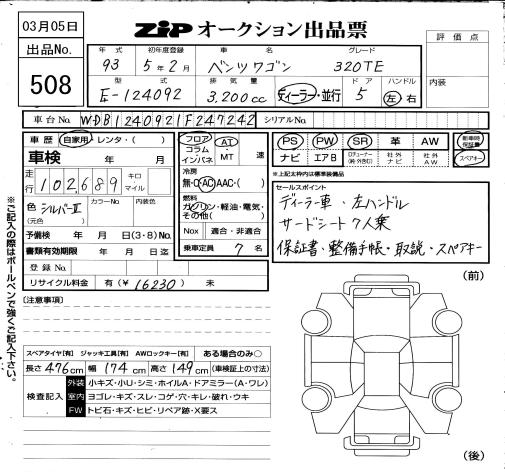 03月05日
ZiP オークション出品票
出品No.
508
評価点
年式 初年度登録 車名 グレード
93 5年2月 ベンツワゴン 320TE
型式 排気量 ドア ハンドル
E-124092 3,200cc ディーラー・並行 5 左 右
内装
車台No. WDB1240921F247242 シリアルNo.
車歴 自家用・レンタ・( )
車検 年 月
走行 102,689 キロ マイル
色 シルバーII (元色) カラーNo. 内装色
予備検 年 月 日(3・8)No.
書類有効期限 年 月 日迄
登録No.
リサイクル料金 有(¥16230) 未
フロア コラム インパネ AT MT 速
冷房
無・C・AC・AAC・( )
燃料
ガソリン・軽油・電気・その他( )
Nox 適合・非適合
乗車定員 7名
PS PW SR 革 AW 新車時保証書
ナビ エアB 社外ナビ 社外AW スペアキー
※上記太枠内は標準装備品
セールスポイント
ディーラー車・左ハンドル
サードシート7人乗
保証書・整備手帳・取説・スペアキー
※ご記入の際はボールペンで強くご記入下さい。
[注意事項]
(前)
スペアタイヤ[有] ジャッキ工具[有] AWロックキー[有] ある場合のみ○
長さ476cm 幅174cm 高さ149cm (車検証上の寸法)
検査記入
外装 小キズ・小U・シミ・ホイルA・ドアミラー(A・ワレ)
室内 ヨゴレ・キズ・スレ・コゲ・穴・キレ・破れ・ウキ
FW トビ石・キズ・ヒビ・リペア跡・X要ス
(後)